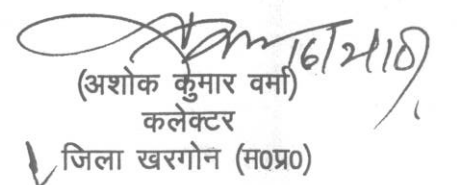 16/2/18
(अशोक कुमार वर्मा)
कलेक्टर
जिला खरगोन (म0प्र0)